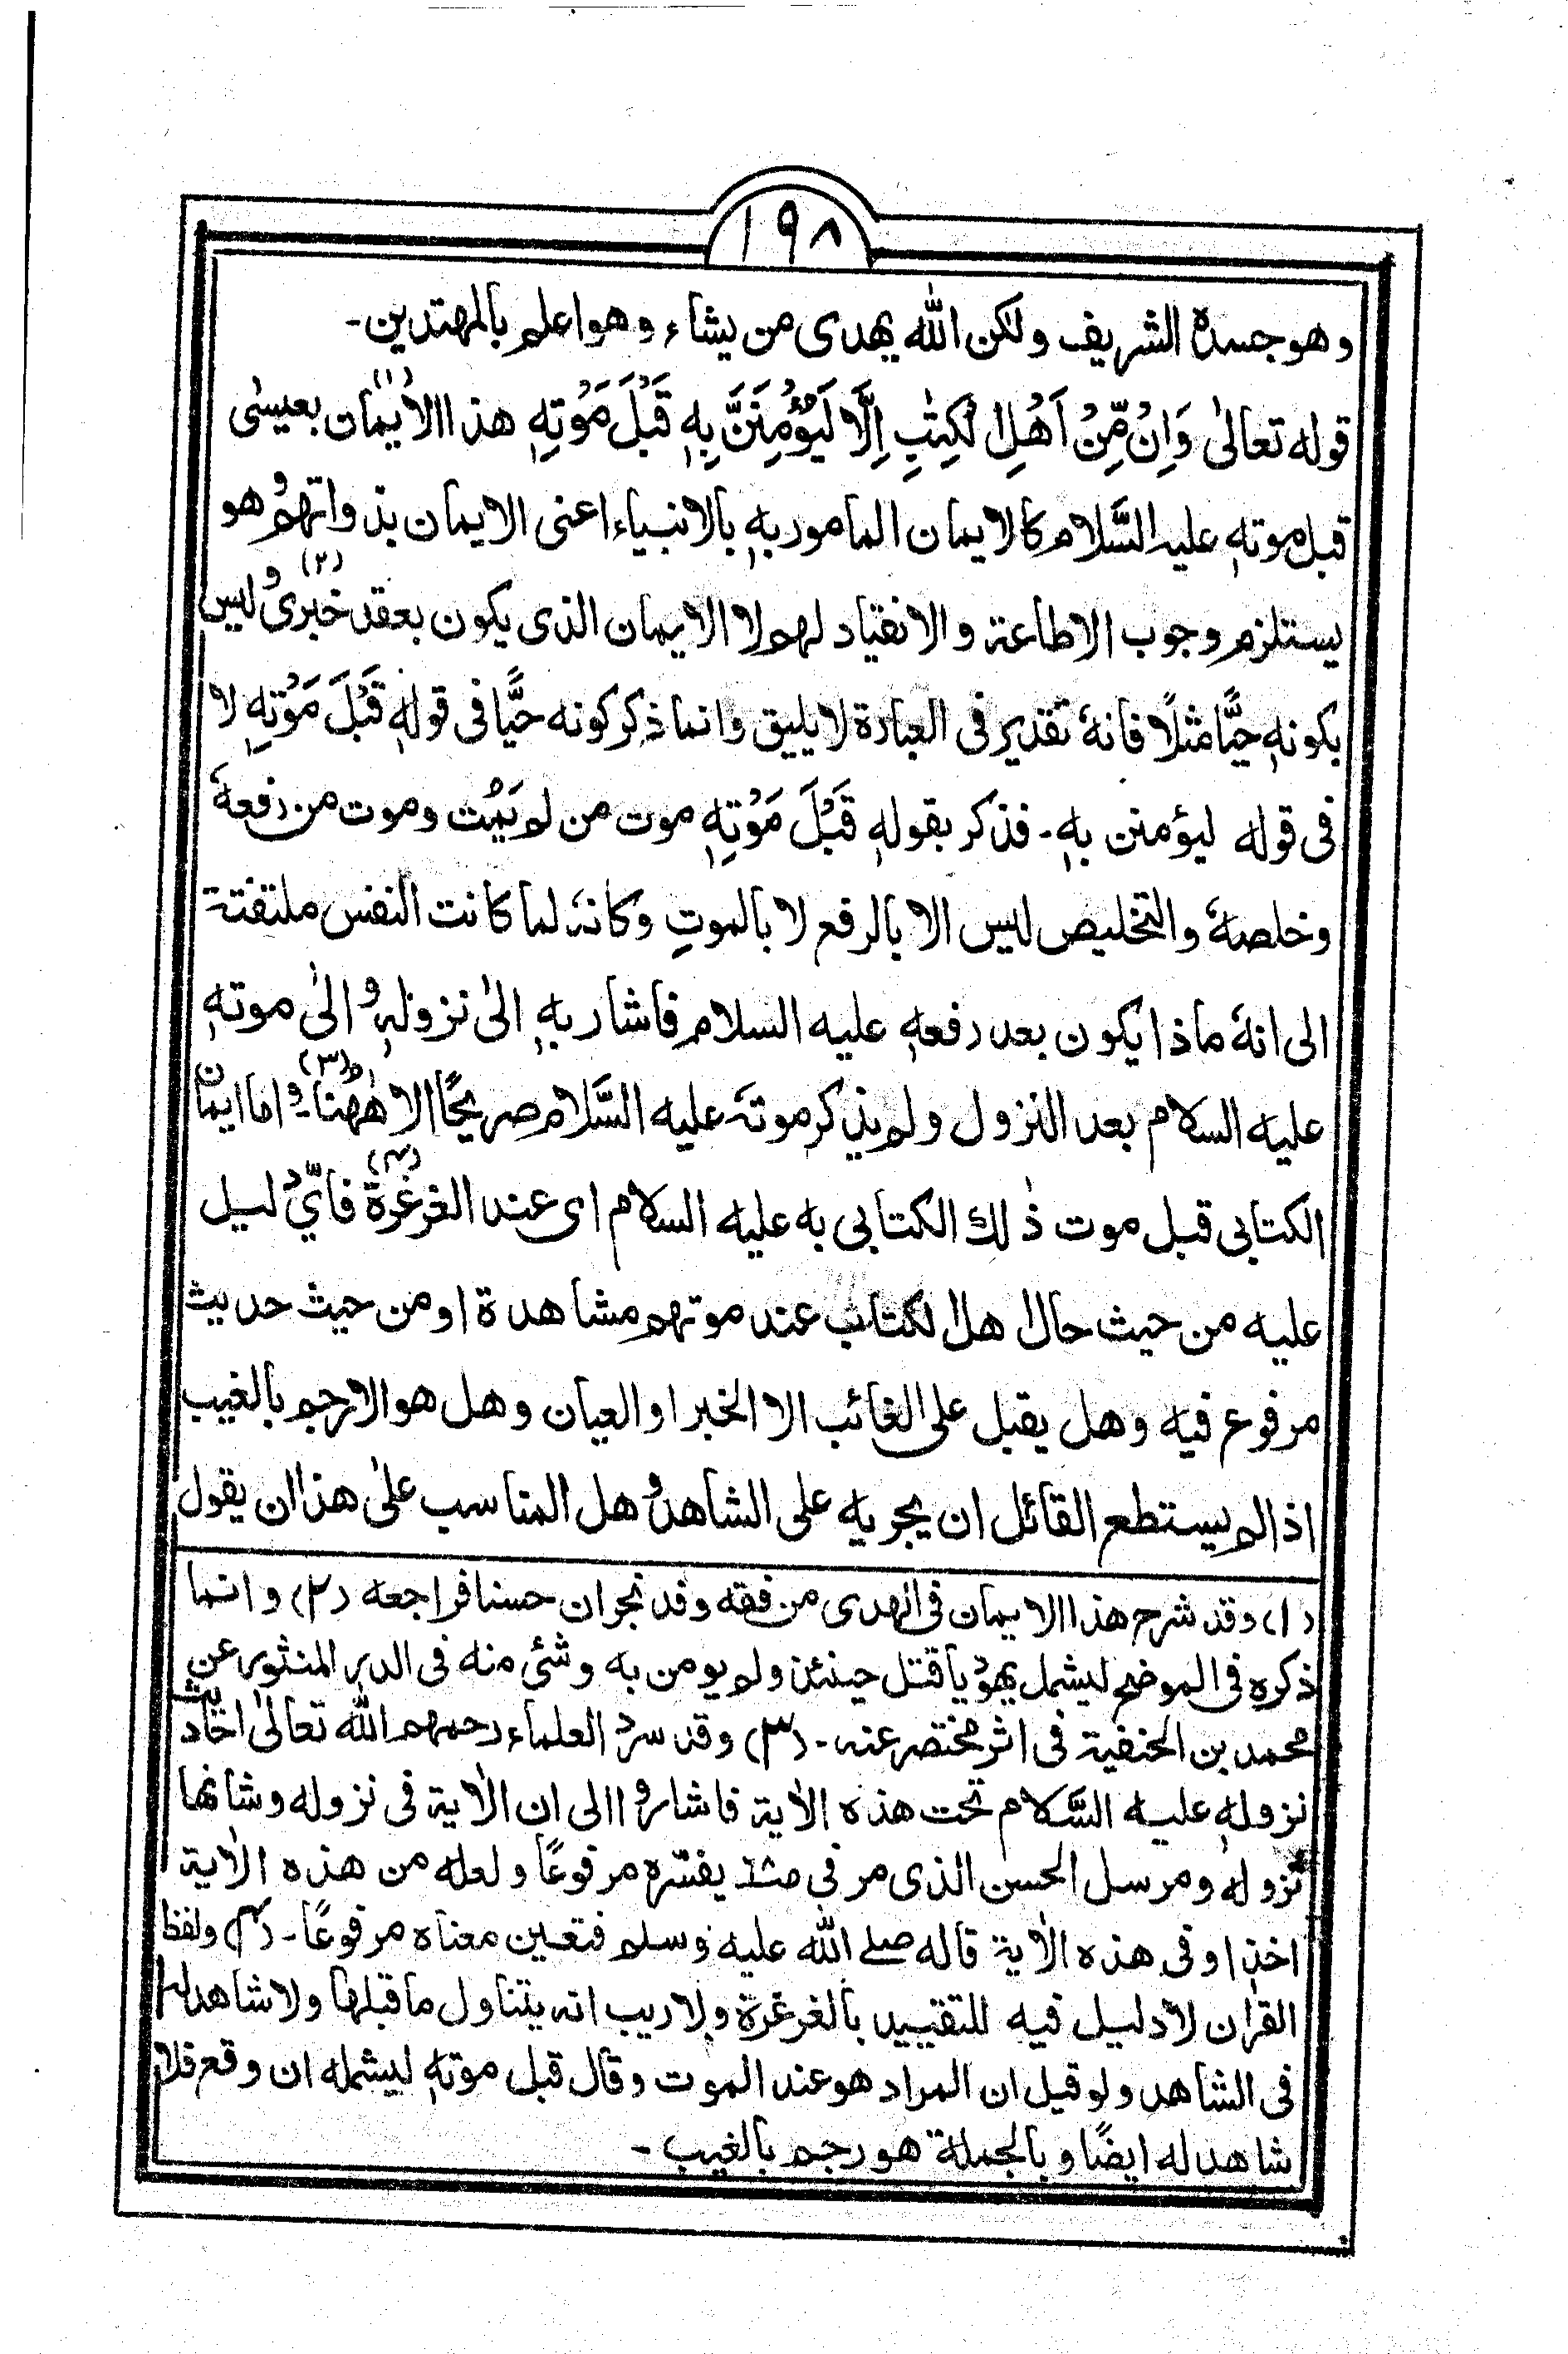 ١٩٨
وهو جسدہ الشريف ولٰكن اللّٰه يهدى من يشاء وهو اعلم بالمهتدين۔
قوله تعالىٰ وَاِنْ مِّنْ اَهْلِ الْكِتٰبِ اِلَّا لَيُؤْمِنَنَّ بِهٖ قَبْلَ مَوْتِهٖ هذا الايمان(١) بعيسٰى
قبل موتهٖ عليه السَّلام كالايمان المامور بهٖ بالانبياء اعنى الايمان بذواتهم وهو
يستلزم وجوب الاطاعة والانقياد لهم لا الايمان الذى يكون بعقد خبرى(٢) وليس
بكونهٖ حيًّا مثلًا فانهٗ تقدير فى العبارة لا يليق وانما ذكر كونه حيًّا فى قولهٖ قَبْلَ مَوْتِهٖ لا
فى قوله ليؤمنن بهٖ۔ فذكر بقولهٖ قَبْلَ مَوْتِهٖ موت من لم يَمُت وموت من رفعهٗ
وخلصهٗ والتخليص ليس الا بالرفع لا بالموتِ وكانهٗ لما كانت النفس ملتفتة
الى انهٗ ماذا يكون بعد رفعهٖ عليه السلام فاشار بهٖ الىٰ نزولهٖ والىٰ موتهٖ
عليه السلام بعد النزول ولم يذكر موتهٗ عليه السَّلام صريحًا الا هٰهُنا(٣)۔ واما ايمان
الكتابى قبل موت ذٰلك الكتابى به عليه السلام اى عند الغرغرة(٤) فاىّ دليل
عليه من حيث حال اهل الكتاب عند موتهم مشاهدة او من حيث حديث
مرفوع فيه وهل يقبل على الغائب الا الخبر او العيان وهل هو الا رجم بالغيب
اذا لم يستطع القائل ان يجريه على الشاهد وهل المناسب علىٰ هذا ان يقول
(١) وقد شرح هذا الايمان فى الهدى من فقه وفد نجران حسنا فراجعه (٢) وانما
ذكره فى الموضح ليشمل يهوديا قتل حينئذ ولم يومن به وشئ منه فى الدر المنثور عن
محمد بن الحنفية فى اثر مختصر عنه۔ (٣) وقد سرد العلماء رحمهم اللّٰه تعالىٰ احاديث
نزولهٖ عليه السَّلام تحت هذه الاٰية فاشاروا الى ان الاٰية فى نزوله وشانها
نزوله ومرسل الحسن الذى مر فى مثلا يفسّره مرفوعًا ولعله من هذه الاٰية
اخذ او فى هذه الاٰية قاله صلے اللّٰه عليه وسلم فتعين معناه مرفوعًا۔ (٤) ولفظ
القراٰن لا دليل فيه للتقييد بالغرغرة ولا ريب انه يتناول ما قبلها ولا شاهد له
فى الشاهد ولو قيل ان المراد هو عند الموت وقال قبل موتهٖ ليشمله ان وقع فلا
شاهد له ايضًا وبالجملة هو رجم بالغيب۔